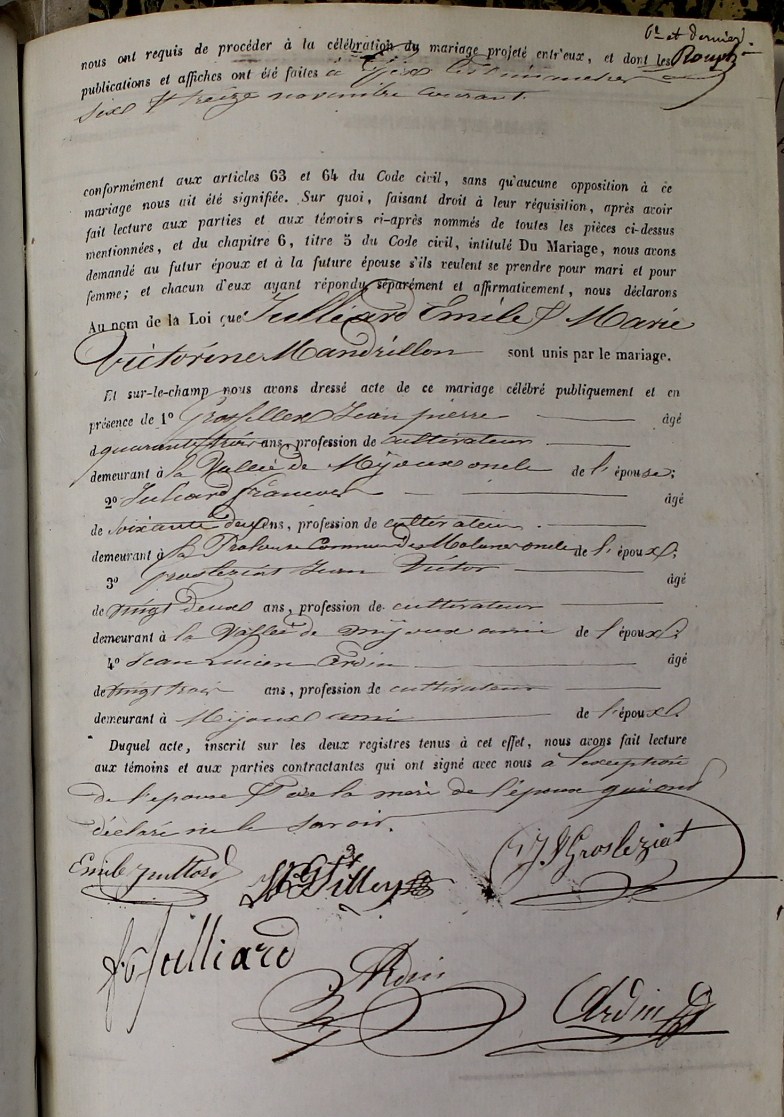 6e et dernier
nous ont requis de procéder à la célébration du mariage projeté entr'eux, et dont les
publications et affiches ont été faites à Gex les dimanches
six & treize novembre courant
conformément aux articles 63 et 64 du Code civil, sans qu'aucune opposition à ce
mariage nous ait été signifiée. Sur quoi, faisant droit à leur réquisition, après avoir
fait lecture aux parties et aux témoirs ci-après nommés de toutes les pièces ci-dessus
mentionnées, et du chapitre 6, titre 5 du Code civil, intitulé Du Mariage, nous avons
demandé au futur époux et à la future épouse s'ils veulent se prendre pour mari et pour
femme; et chacun d'eux ayant répondu séparément et affirmativement, nous déclarons
Au nom de la Loi que Julliard Emile & Marie
Victorine Mandrillon sont unis par le mariage.
Et sur-le-champ nous avons dressé acte de ce mariage célébré publiquement et en
présence de 1º Grosfillex Jean pierre âgé
d quarante trois ans, profession de cultivateur
demeurant à la Vallée de Mijoux oncle de l'épouse;
2º Julliard françois âgé
de soixante deux ans, profession de cultivateur
demeurant à la Commune des Molunes oncle de l'époux;
3º Grosleziat Jean Victor âgé
de vingt deux ans, profession de cultivateur
demeurant à la Vallée de mijoux ami de l'époux;
4º Jean Lucien Ardin âgé
de vingt trois ans, profession de cultivateur
demeurant à Mijoux ami de l'époux.
Duquel acte, inscrit sur les deux registres tenus à cet effet, nous avons fait lecture
aux témoins et aux parties contractantes qui ont signé avec nous à l'exception
de l'épouse & de la mère de l'époux qui ont
déclaré ne le savoir.
Emile Julliard
J V Grosleziat
Julliard
Ardin
Ardin